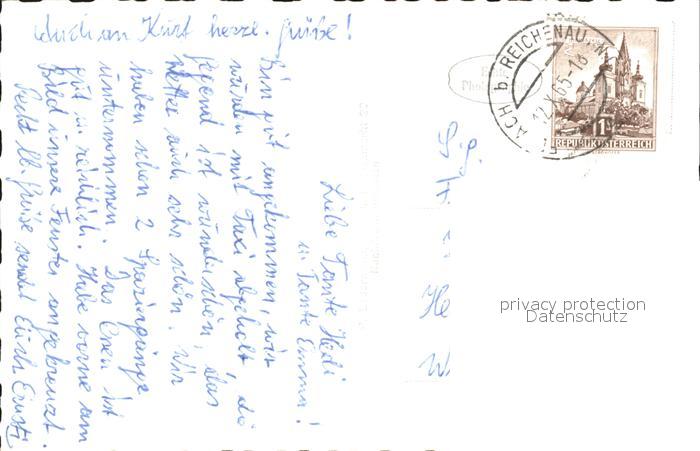 Auch an Kurt herzl. Grüße!
Liebe Tante Hedi
u. Tante Emma!
Bin gut angekommen, wir
wurden mit Taxi abgeholt, die
Gegend ist wunderschön, das
Wetter auch sehr schön. Wir
haben schon 2 Spaziergänge
unternommen. Das Essen ist
gut u. reichlich. Habe vorne am
Bild unsere Fenster angekreuzt.
Recht lb. Grüße sendet Euch
He
W
ACH b. REICHENAU, N
12.X.65-18
1S
REPUBLIK ÖSTERREICH
privacy protection
Datenschutz